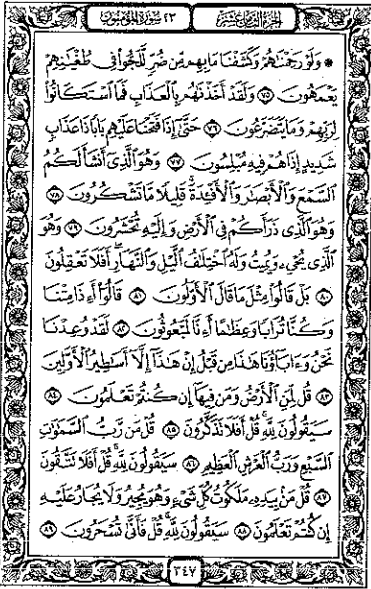 الجزء الثامن عشر
٢٣ سورة المؤمنون
۞ وَلَوْ رَحِمْنَٰهُمْ وَكَشَفْنَا مَا بِهِم مِّن ضُرٍّ لَّلَجُّوا۟ فِى طُغْيَٰنِهِمْ
يَعْمَهُونَ ٧٥ وَلَقَدْ أَخَذْنَٰهُم بِٱلْعَذَابِ فَمَا ٱسْتَكَانُوا۟
لِرَبِّهِمْ وَمَا يَتَضَرَّعُونَ ٧٦ حَتَّىٰٓ إِذَا فَتَحْنَا عَلَيْهِم بَابًا ذَا عَذَابٍ
شَدِيدٍ إِذَا هُمْ فِيهِ مُبْلِسُونَ ٧٧ وَهُوَ ٱلَّذِىٓ أَنشَأَ لَكُمُ
ٱلسَّمْعَ وَٱلْأَبْصَٰرَ وَٱلْأَفْـِٔدَةَ ۚ قَلِيلًا مَّا تَشْكُرُونَ ٧٨
وَهُوَ ٱلَّذِى ذَرَأَكُمْ فِى ٱلْأَرْضِ وَإِلَيْهِ تُحْشَرُونَ ٧٩ وَهُوَ
ٱلَّذِى يُحْىِۦ وَيُمِيتُ وَلَهُ ٱخْتِلَٰفُ ٱلَّيْلِ وَٱلنَّهَارِ ۚ أَفَلَا تَعْقِلُونَ
٨٠ بَلْ قَالُوا۟ مِثْلَ مَا قَالَ ٱلْأَوَّلُونَ ٨١ قَالُوٓا۟ أَءِذَا مِتْنَا
وَكُنَّا تُرَابًا وَعِظَٰمًا أَءِنَّا لَمَبْعُوثُونَ ٨٢ لَقَدْ وُعِدْنَا
نَحْنُ وَءَابَآؤُنَا هَٰذَا مِن قَبْلُ إِنْ هَٰذَآ إِلَّآ أَسَٰطِيرُ ٱلْأَوَّلِينَ
٨٣ قُل لِّمَنِ ٱلْأَرْضُ وَمَن فِيهَآ إِن كُنتُمْ تَعْلَمُونَ ٨٤
سَيَقُولُونَ لِلَّهِ ۚ قُلْ أَفَلَا تَذَكَّرُونَ ٨٥ قُلْ مَن رَّبُّ ٱلسَّمَٰوَٰتِ
ٱلسَّبْعِ وَرَبُّ ٱلْعَرْشِ ٱلْعَظِيمِ ٨٦ سَيَقُولُونَ لِلَّهِ ۚ قُلْ أَفَلَا تَتَّقُونَ
٨٧ قُلْ مَنۢ بِيَدِهِۦ مَلَكُوتُ كُلِّ شَىْءٍ وَهُوَ يُجِيرُ وَلَا يُجَارُ عَلَيْهِ
إِن كُنتُمْ تَعْلَمُونَ ٨٨ سَيَقُولُونَ لِلَّهِ ۚ قُلْ فَأَنَّىٰ تُسْحَرُونَ ٨٩
٣٤٧